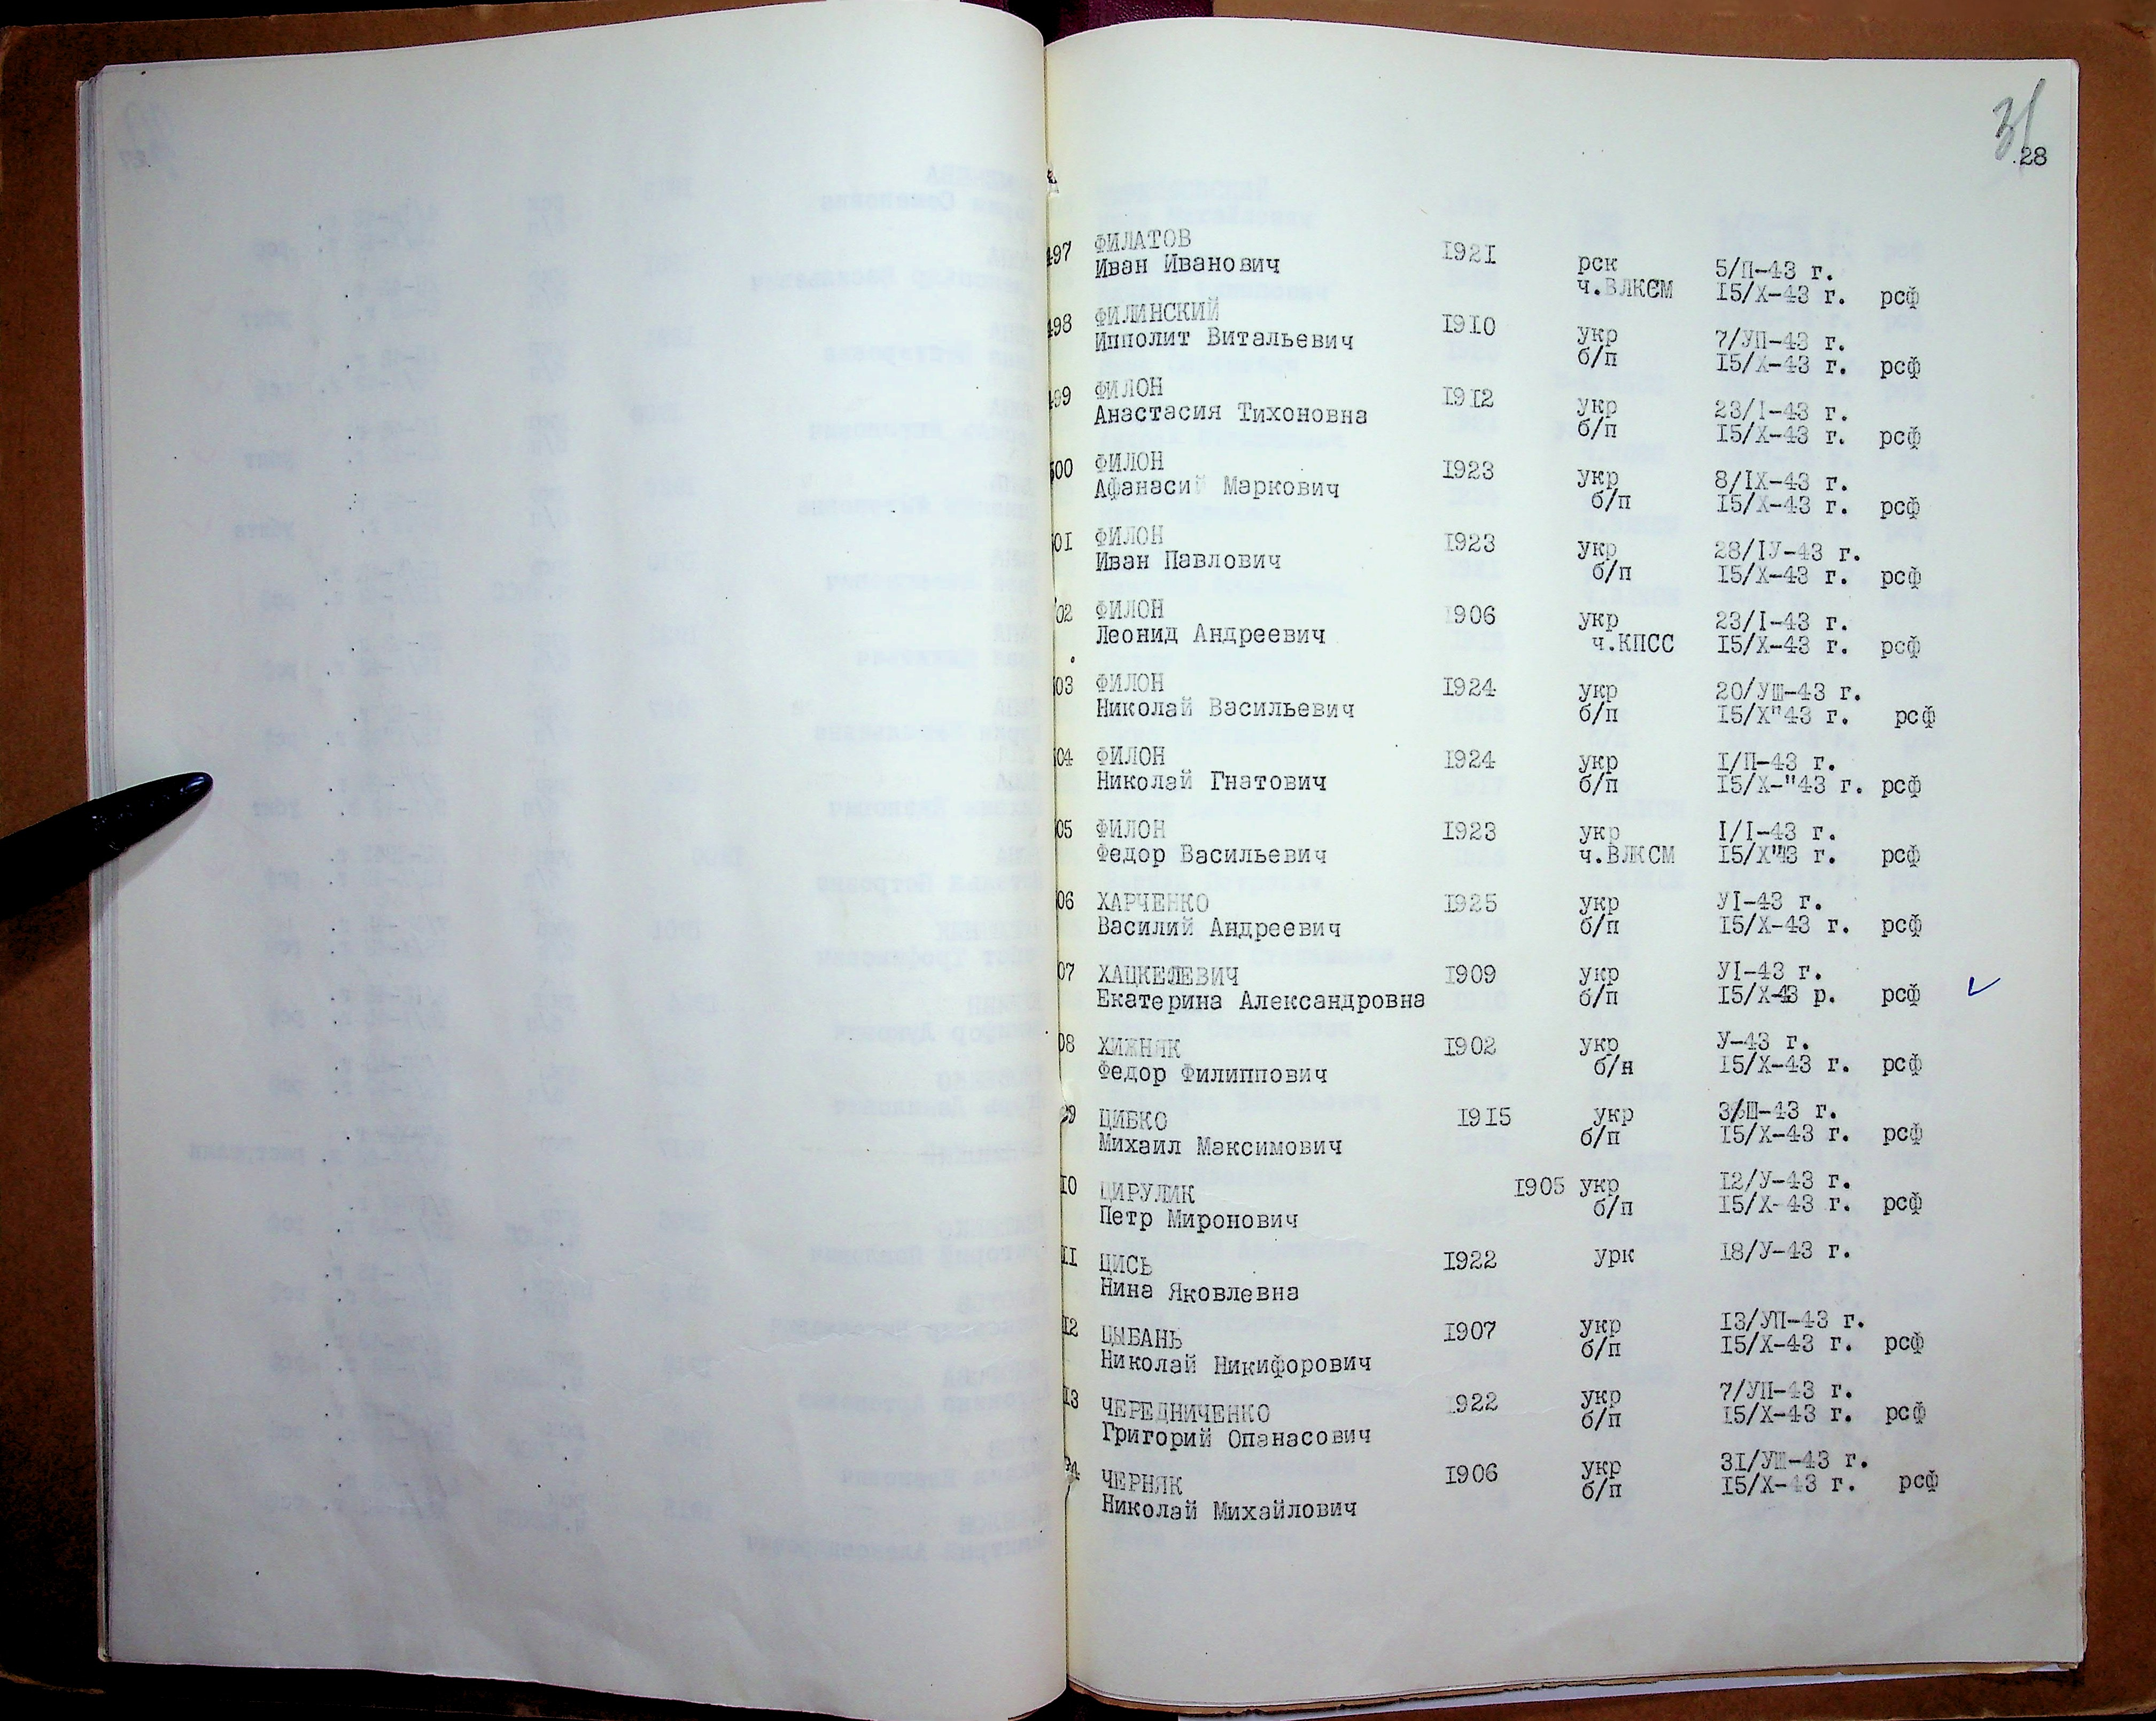 31
28
497 ФИЛАТОВ 1921 рск 5/П-43 г.
Иван Иванович ч.ВЛКСМ I5/X-43 г. рсф
498 ФИЛИНСКИЙ 1910 укр 7/УП-43 г.
Ипполит Витальевич б/п I5/X-43 г. рсф
499 ФИЛОН 1912 укр 23/I-43 г.
Анастасия Тихоновна б/п I5/X-43 г. рсф
500 ФИЛОН 1923 укр 8/IX-43 г.
Афанасий Маркович б/п I5/X-43 г. рсф
01 ФИЛОН 1923 укр 28/IУ-43 г.
Иван Павлович б/п I5/X-43 г. рсф
02 ФИЛОН 1906 укр 23/I-43 г.
Леонид Андреевич ч.КПСС I5/X-43 г. рсф
03 ФИЛОН 1924 укр 20/УШ-43 г.
Николай Васильевич б/п I5/X"43 г. рсф
04 ФИЛОН 1924 укр I/П-43 г.
Николай Гнатович б/п I5/X-"43 г. рсф
05 ФИЛОН 1923 укр I/I-43 г.
Федор Васильевич ч.ВЛКСМ I5/X"43 г. рсф
06 ХАРЧЕНКО 1925 укр УI-43 г.
Василий Андреевич б/п I5/X-43 г. рсф
07 ХАЦКЕЛЕВИЧ 1909 укр УI-43 г.
Екатерина Александровна б/п I5/X-43 р. рсф
08 ХИЖНЯК 1902 укр У-43 г.
Федор Филиппович б/н I5/X-43 г. рсф
09 ЦИБКО 1915 укр 3/Ш-43 г.
Михаил Максимович б/п I5/X-43 г. рсф
10 ЦИРУЛИК 1905 укр I2/У-43 г.
Петр Миронович б/п I5/X-43 г. рсф
11 ЦИСЬ 1922 урк I8/У-43 г.
Нина Яковлевна
12 ЦЫБАНЬ 1907 укр I3/УП-43 г.
Николай Никифорович б/п I5/X-43 г. рсф
13 ЧЕРЕДНИЧЕНКО 1922 укр 7/УП-43 г.
Григорий Опанасович б/п I5/X-43 г. рсф
ЧЕРНЯК 1906 укр 31/УШ-43 г.
Николай Михайлович б/п I5/X-43 г. рсф